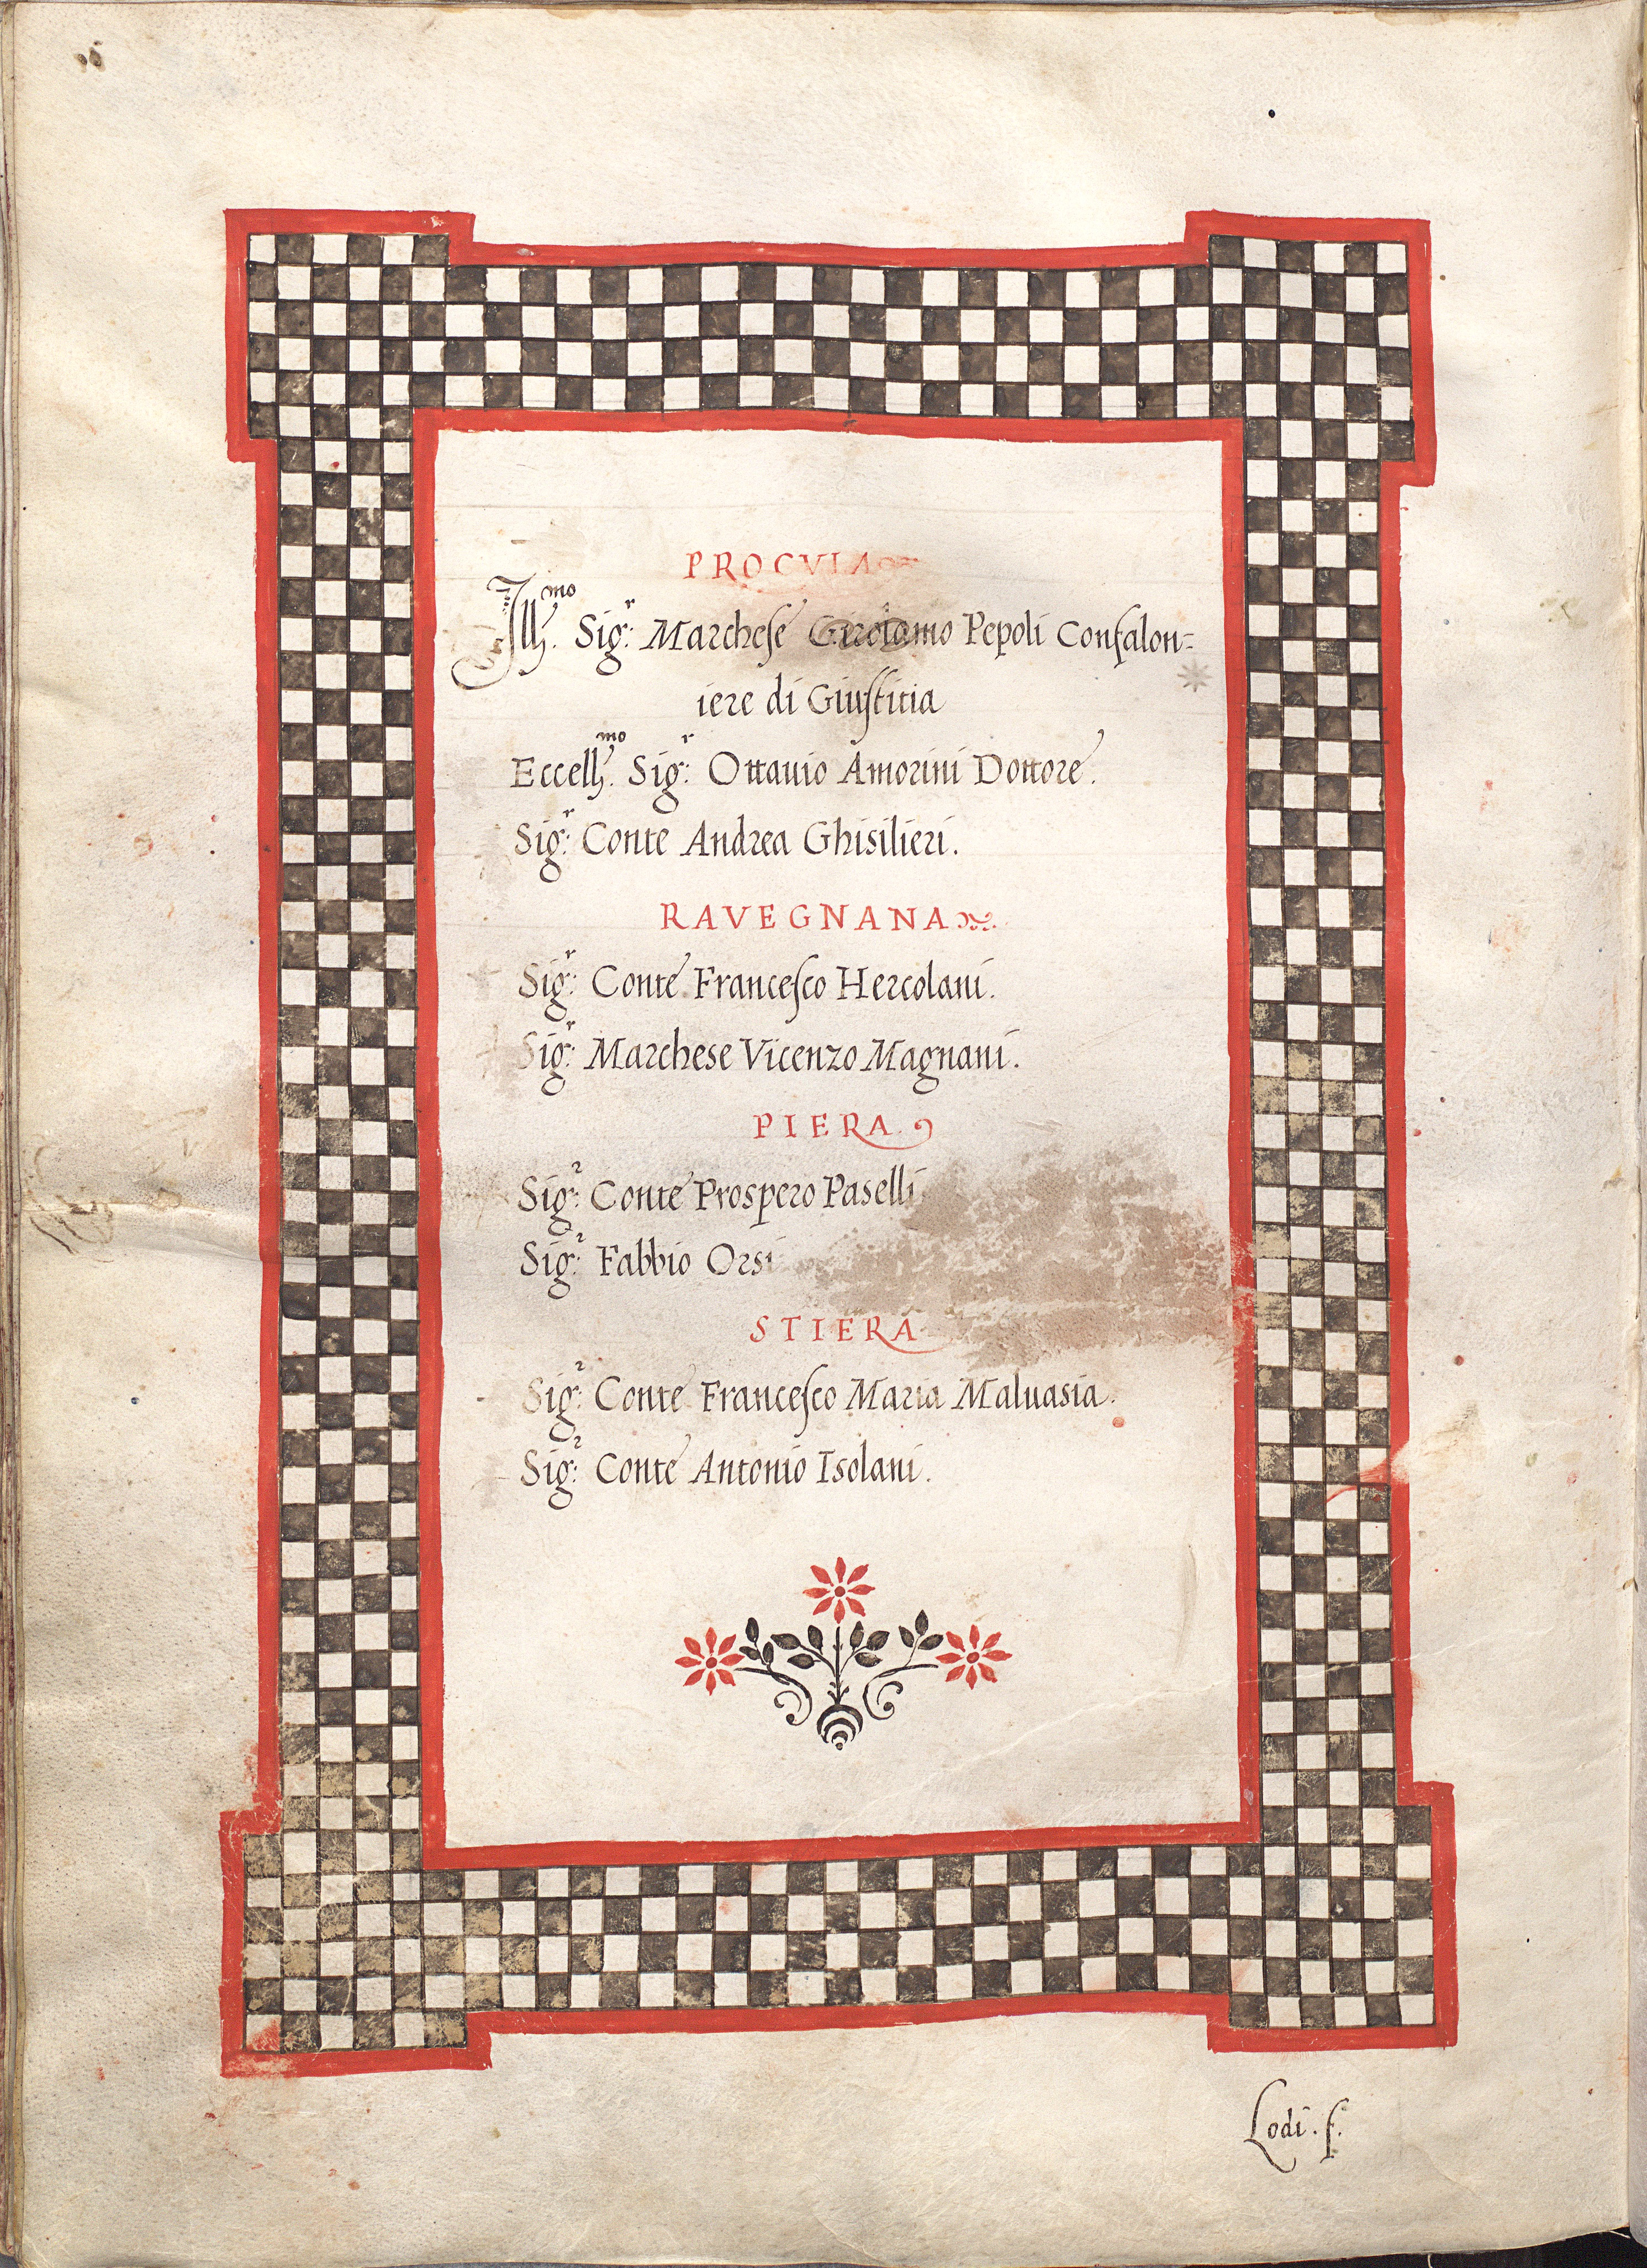 PROCVLA
Ill.mo Sig.r Marchese Girolamo Pepoli Confalon=
iere di Giustitia
Eccell.mo Sig.r Ottauio Amorini Dottore.
Sig.r Conte Andrea Ghisilieri.
RAVEGNANA
Sig.r Conte Francesco Hercolani.
Sig.r Marchese Vicenzo Magnani.
PIERA
Sig.r Conte Prospero Paselli
Sig.r Fabbio Orsi
STIERA
Sig.r Conte Francesco Maria Maluasia.
Sig.r Conte Antonio Isolani.
Lodi. f.